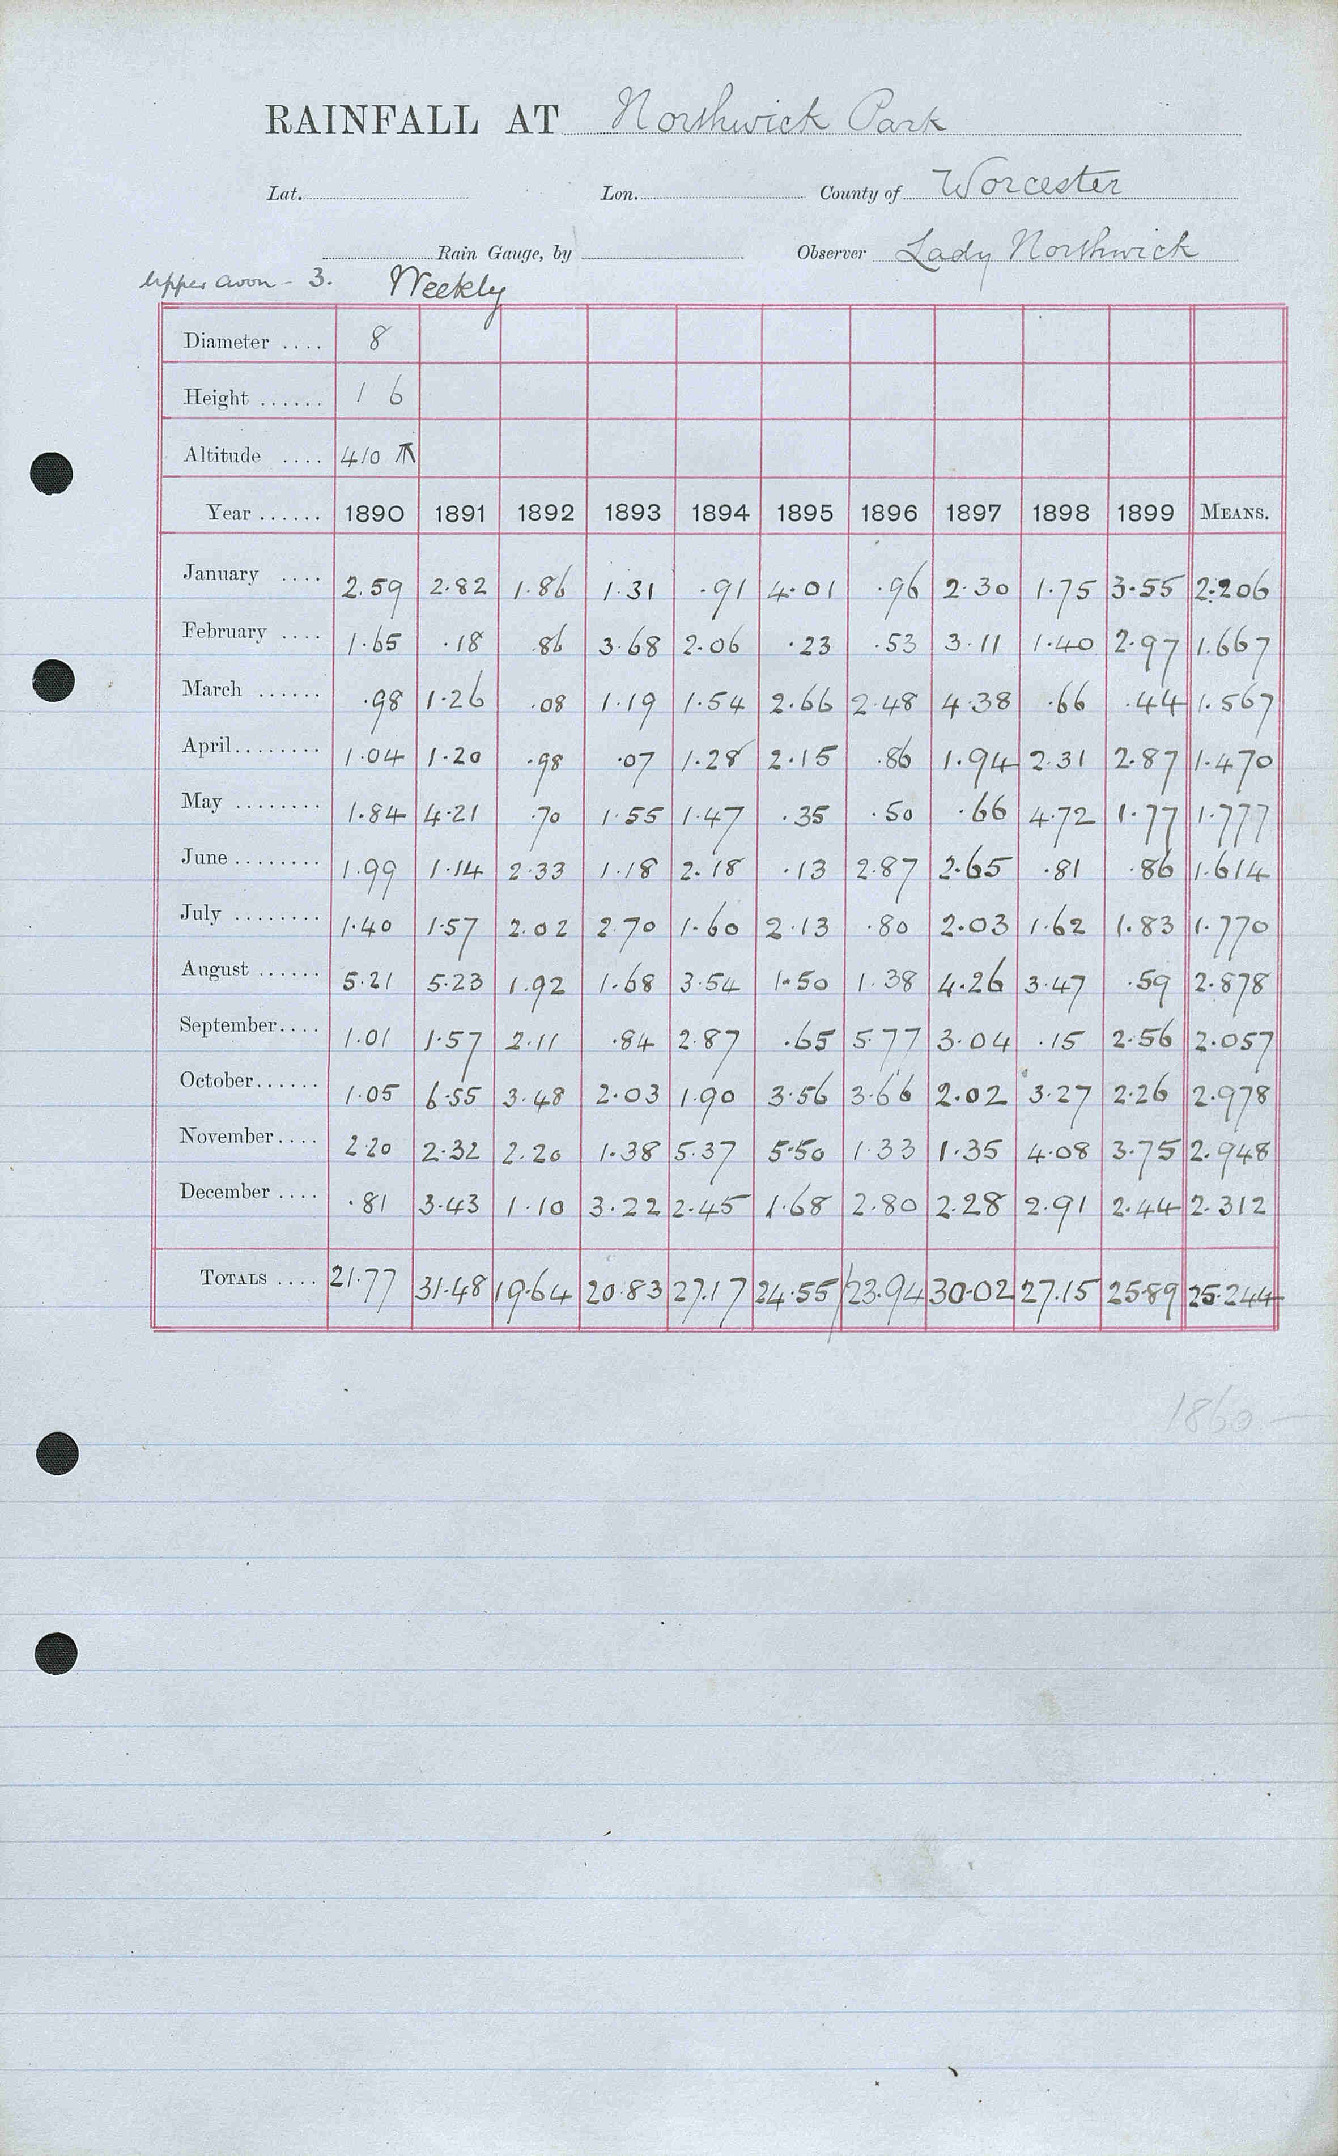 RAINFALL AT Northwick Park
Lat. Lon. County of Worcester
Rain Gauge, by Observer Lady Northwick
Upper Avon - 3. Weekly
Diameter .... 8
Height ...... 1 6
Altitude .... 410 T
Year ...... 1890 1891 1892 1893 1894 1895 1896 1897 1898 1899 MEANS.
January .... 2.59 2.82 1.86 1.31 .91 4.01 .96 2.30 1.75 3.55 2.206
February .... 1.65 .18 .86 3.68 2.06 .23 .53 3.11 1.40 2.97 1.667
March ...... .98 1.26 .08 1.19 1.54 2.66 2.48 4.38 .66 .44 1.567
April........ 1.04 1.20 .98 .07 1.28 2.15 .86 1.94 2.31 2.87 1.470
May ........ 1.84 4.21 .70 1.55 1.47 .35 .50 .66 4.72 1.77 1.777
June ........ 1.99 1.14 2.33 1.18 2.18 .13 2.87 2.65 .81 .86 1.614
July ........ 1.40 1.57 2.02 2.70 1.60 2.13 .80 2.03 1.62 1.83 1.770
August ...... 5.21 5.23 1.92 1.68 3.54 1.50 1.38 4.26 3.47 .59 2.878
September.... 1.01 1.57 2.11 .84 2.87 .65 5.77 3.04 .15 2.56 2.057
October...... 1.05 6.55 3.48 2.03 1.90 3.56 3.66 2.02 3.27 2.26 2.978
November.... 2.20 2.32 2.20 1.38 5.37 5.50 1.33 1.35 4.08 3.75 2.948
December .... .81 3.43 1.10 3.22 2.45 1.68 2.80 2.28 2.91 2.44 2.312
TOTALS .... 21.77 31.48 19.64 20.83 27.17 24.55 23.94 30.02 27.15 25.89 25.244
1860 —